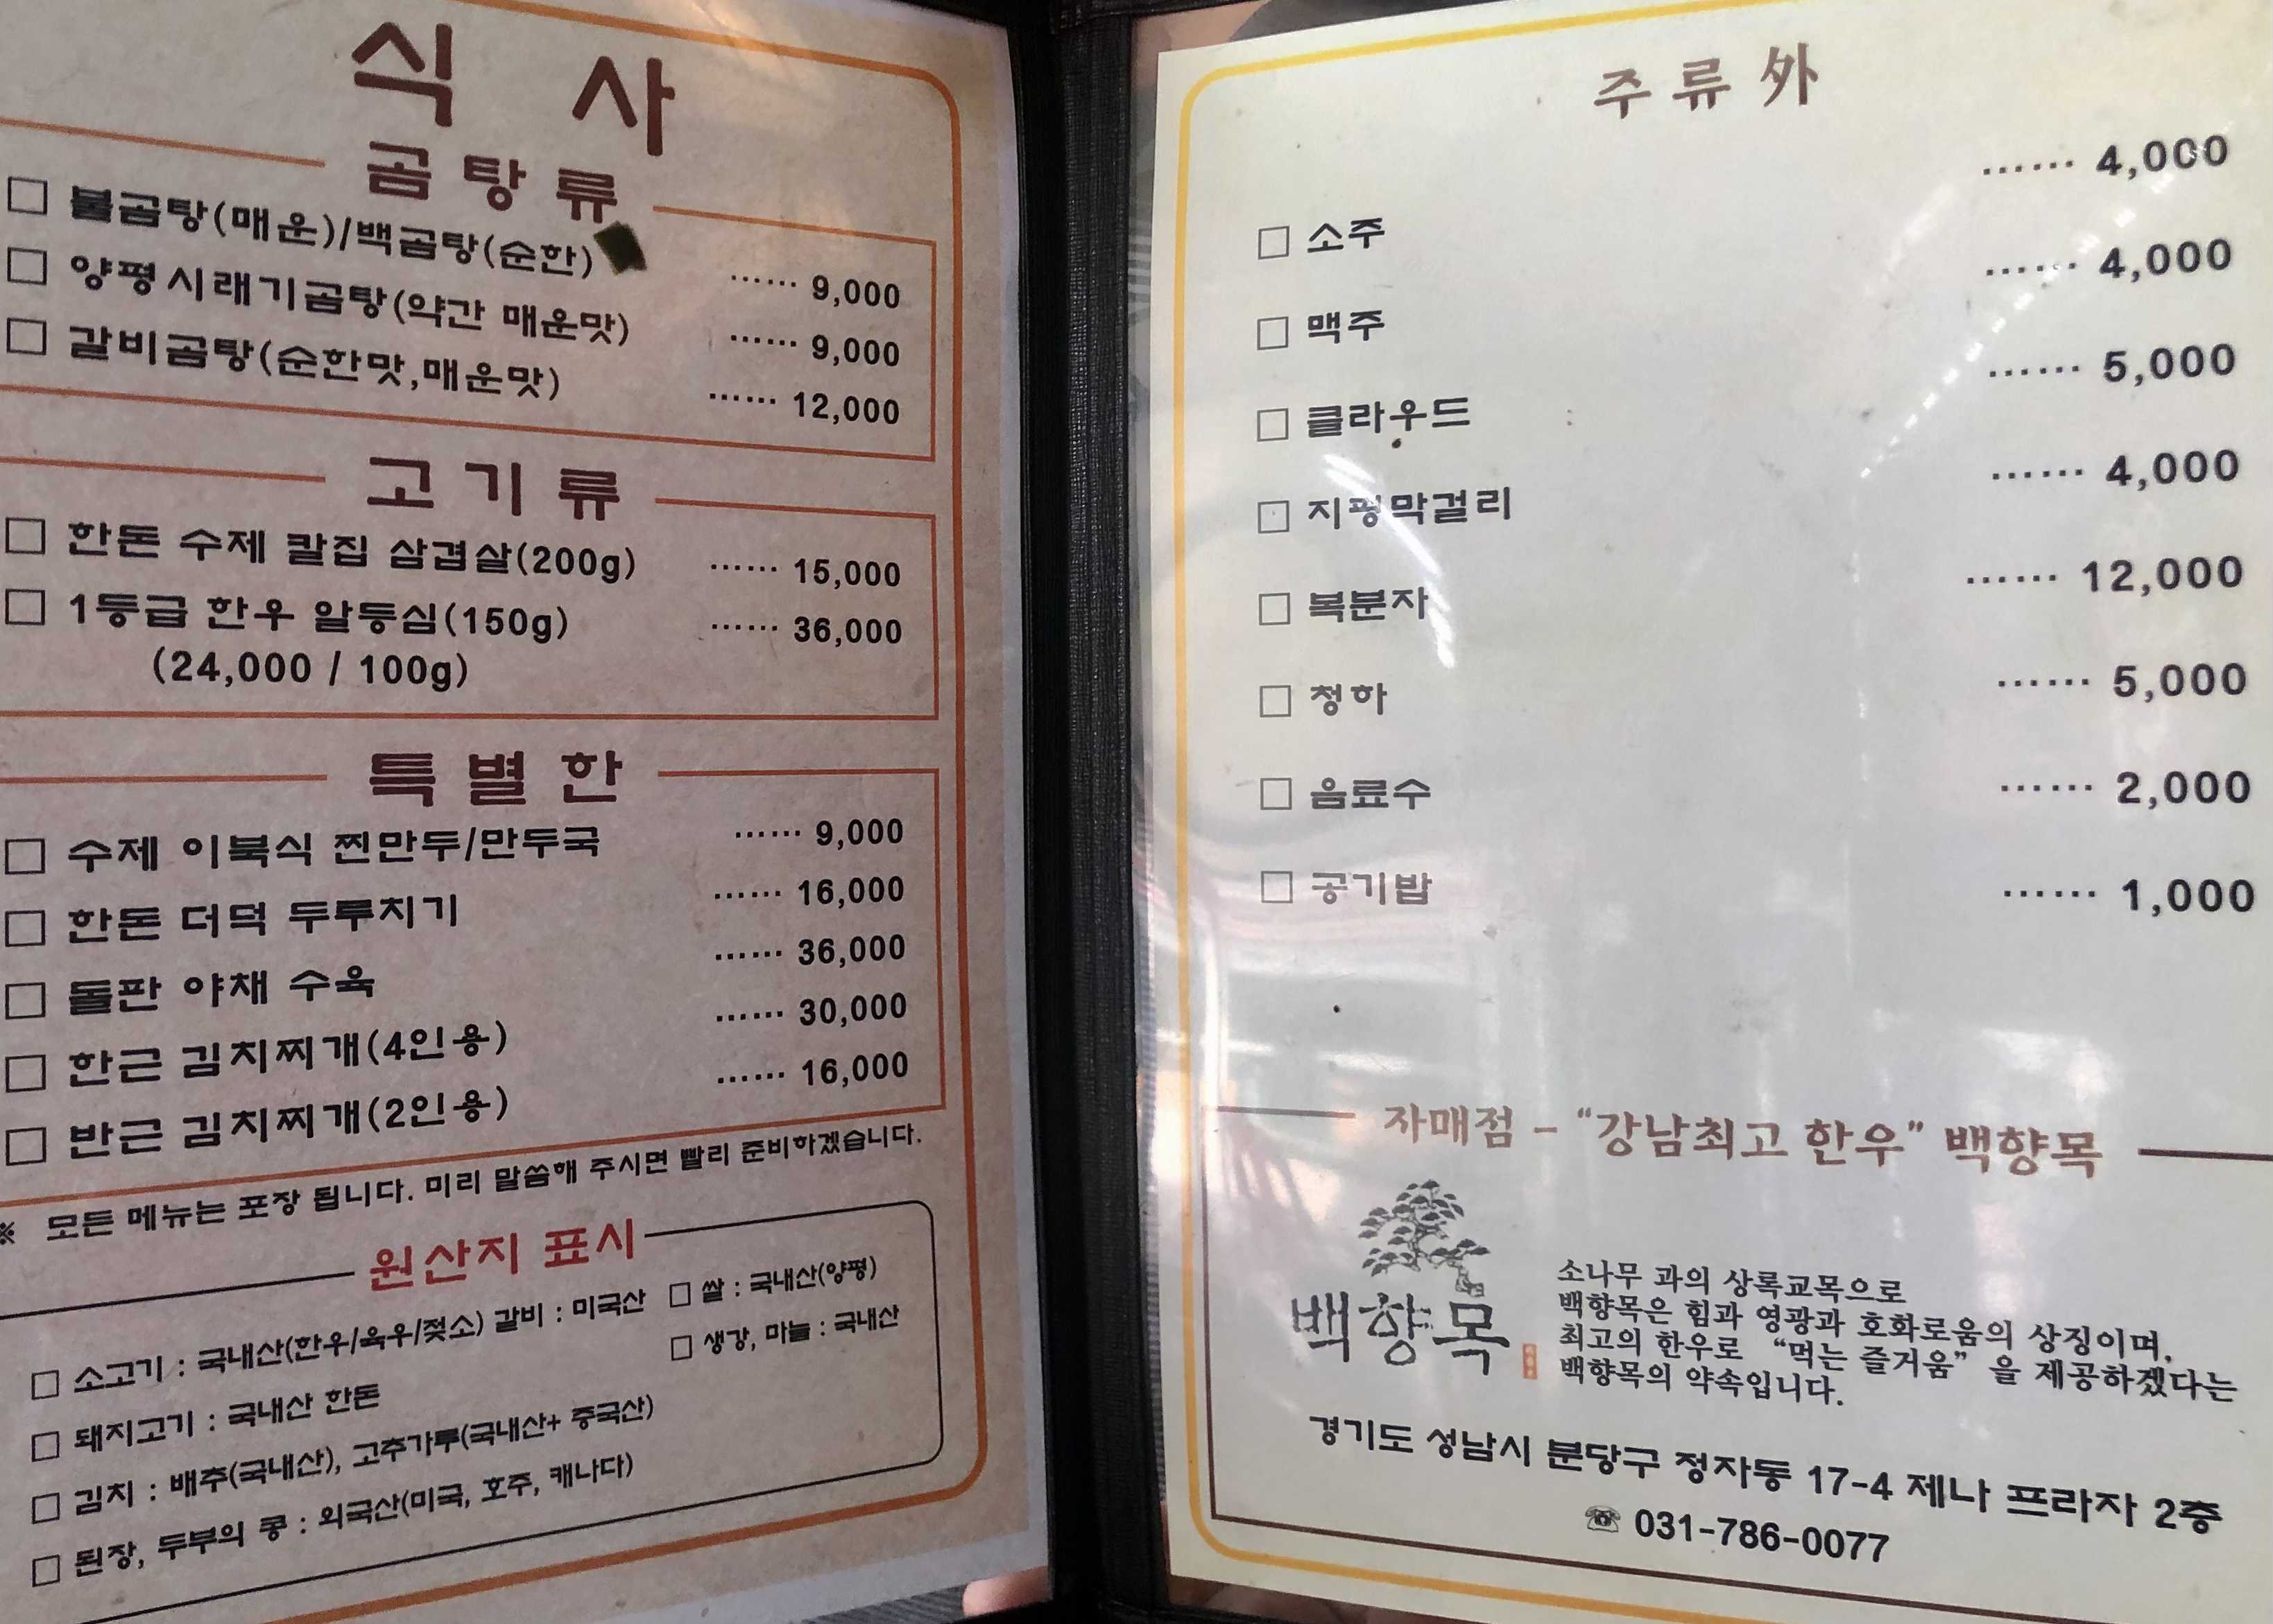 식 사
곰 탕 류
□ 불곰탕(매운)/백곰탕(순한) ······ 9,000
□ 양평시래기곰탕(약간 매운맛) ······ 9,000
□ 갈비곰탕(순한맛,매운맛) ······ 12,000
고 기 류
□ 한돈 수제 칼집 삼겹살(200g) ······ 15,000
□ 1등급 한우 알등심(150g) ······ 36,000
(24,000 / 100g)
특 별 한
□ 수제 이북식 찐만두/만두국 ······ 9,000
□ 한돈 더덕 두루치기 ······ 16,000
□ 돌판 야채 수육 ······ 36,000
□ 한근 김치찌개(4인용) ······ 30,000
□ 반근 김치찌개(2인용) ······ 16,000
※ 모든 메뉴는 포장 됩니다. 미리 말씀해 주시면 빨리 준비하겠습니다.
원산지 표시
□ 소고기 : 국내산(한우/육우/젖소) 갈비 : 미국산 □ 쌀 : 국내산(양평)
□ 돼지고기 : 국내산 한돈 □ 생강, 마늘 : 국내산
□ 김치 : 배추(국내산), 고추가루(국내산+ 중국산)
□ 된장, 두부의 콩 : 외국산(미국, 호주, 캐나다)
주 류 外
□ 소주 ······ 4,000
□ 맥주 ······ 4,000
□ 클라우드 ······ 5,000
□ 지평막걸리 ······ 4,000
□ 복분자 ······ 12,000
□ 청하 ······ 5,000
□ 음료수 ······ 2,000
□ 공기밥 ······ 1,000
자매점 - “강남최고 한우” 백향목
백향목
소나무 과의 상록교목으로
백향목은 힘과 영광과 호화로움의 상징이며,
최고의 한우로 “먹는 즐거움” 을 제공하겠다는
백향목의 약속입니다.
경기도 성남시 분당구 정자동 17-4 제나 프라자 2층
☏ 031-786-0077